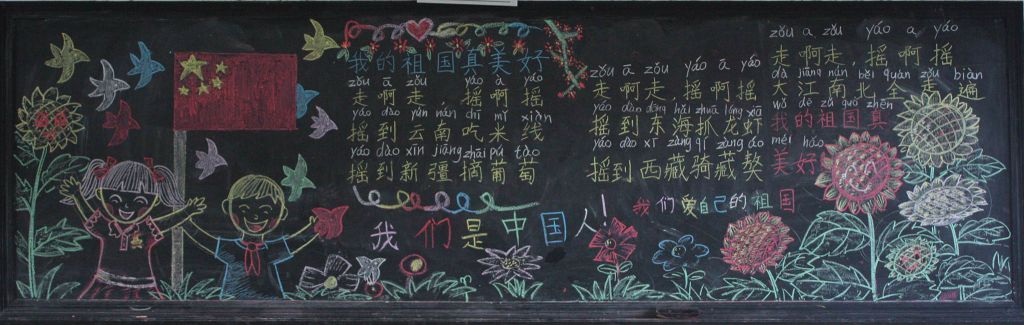 我的祖国真美好
zǒu ā zǒu yáo ā yáo
走啊走，摇啊摇
yáo dào yún nán chī mǐ xiàn
摇到云南吃米线
yáo dào xīn jiāng zhāi pú táo
摇到新疆摘葡萄
zǒu ā zǒu yáo ā yáo
走啊走，摇啊摇
yáo dào dōng hǎi zhuā lóng xiā
摇到东海抓龙虾
yáo dào xī zàng qí zàng áo
摇到西藏骑藏獒
zǒu a zǒu yáo a yáo
走啊走，摇啊摇
dà jiāng nán běi quán zǒu biàn
大江南北全走遍
wǒ de zǔ guó zhēn
我的祖国真
měi hǎo
美好
我们爱自己的祖国
我们是中国人！